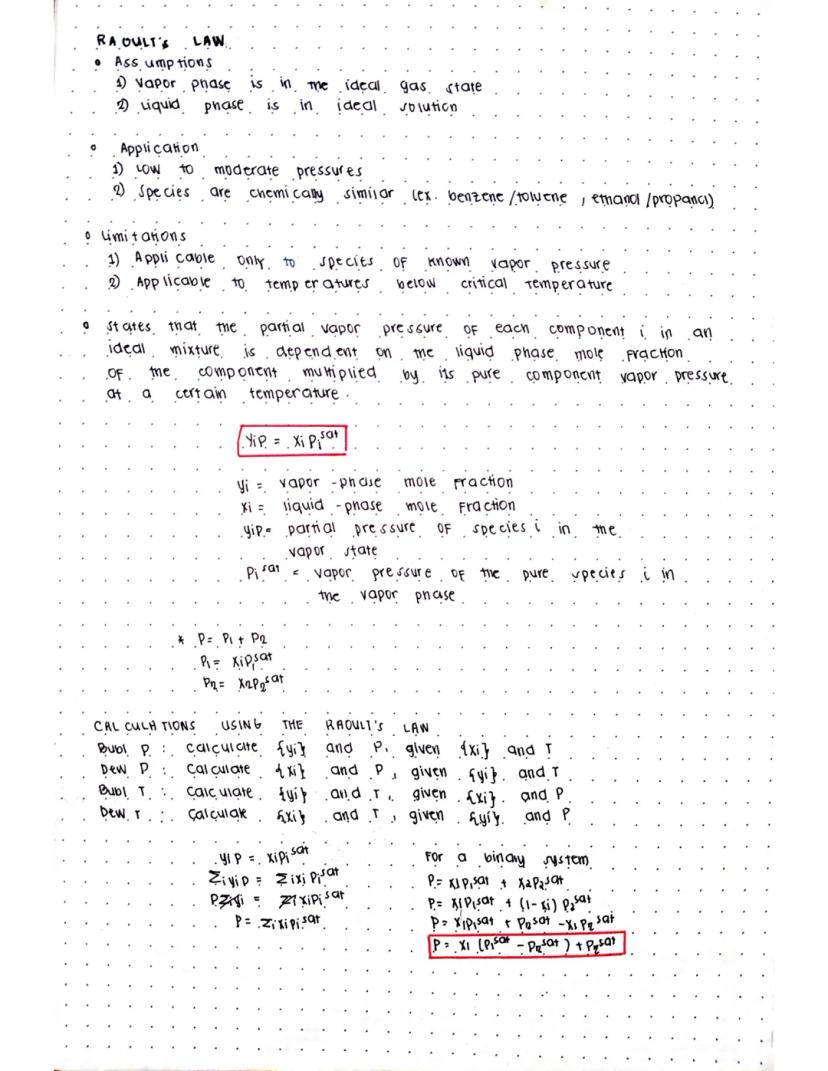 RAOULT's LAW
• Assumptions
1) Vapor phase is in the ideal gas state
2) Liquid phase is in ideal solution
• Application
1) Low to moderate pressures
2) Species are chemically similar (ex. benzene/toluene, ethanol/propanol)
• Limitations
1) Applicable only to species of known vapor pressure
2) Applicable to temperatures below critical temperature
• States that the partial vapor pressure of each component i in an
ideal mixture is dependent on the liquid phase mole fraction
of the component multiplied by its pure component vapor pressure
at a certain temperature.
yiP = xiPi^sat
yi = vapor-phase mole fraction
xi = liquid-phase mole fraction
yiP = partial pressure of species i in the
vapor state
Pi^sat = vapor pressure of the pure species i in
the vapor phase
* P = P1 + P2
P1 = xiP1^sat
P2 = x2P2^sat
CALCULATIONS USING THE RAOULT's LAW
Bubl P : Calculate {yi} and P, given {xi} and T
Dew P : Calculate {xi} and P, given {yi} and T
Bubl T : Calculate {yi} and T, given {xi} and P
Dew T : Calculate {xi} and T, given {yi} and P
yiP = xiPi^sat
ΣiyiP = ΣixiPi^sat
PΣyi = ΣixiPi^sat
P = ΣixiPi^sat
For a binary system
P = x1P1^sat + x2P2^sat
P = x1P1^sat + (1-x1) P2^sat
P = x1P1^sat + P2^sat - x1P2^sat
P = x1 (P1^sat - P2^sat) + P2^sat